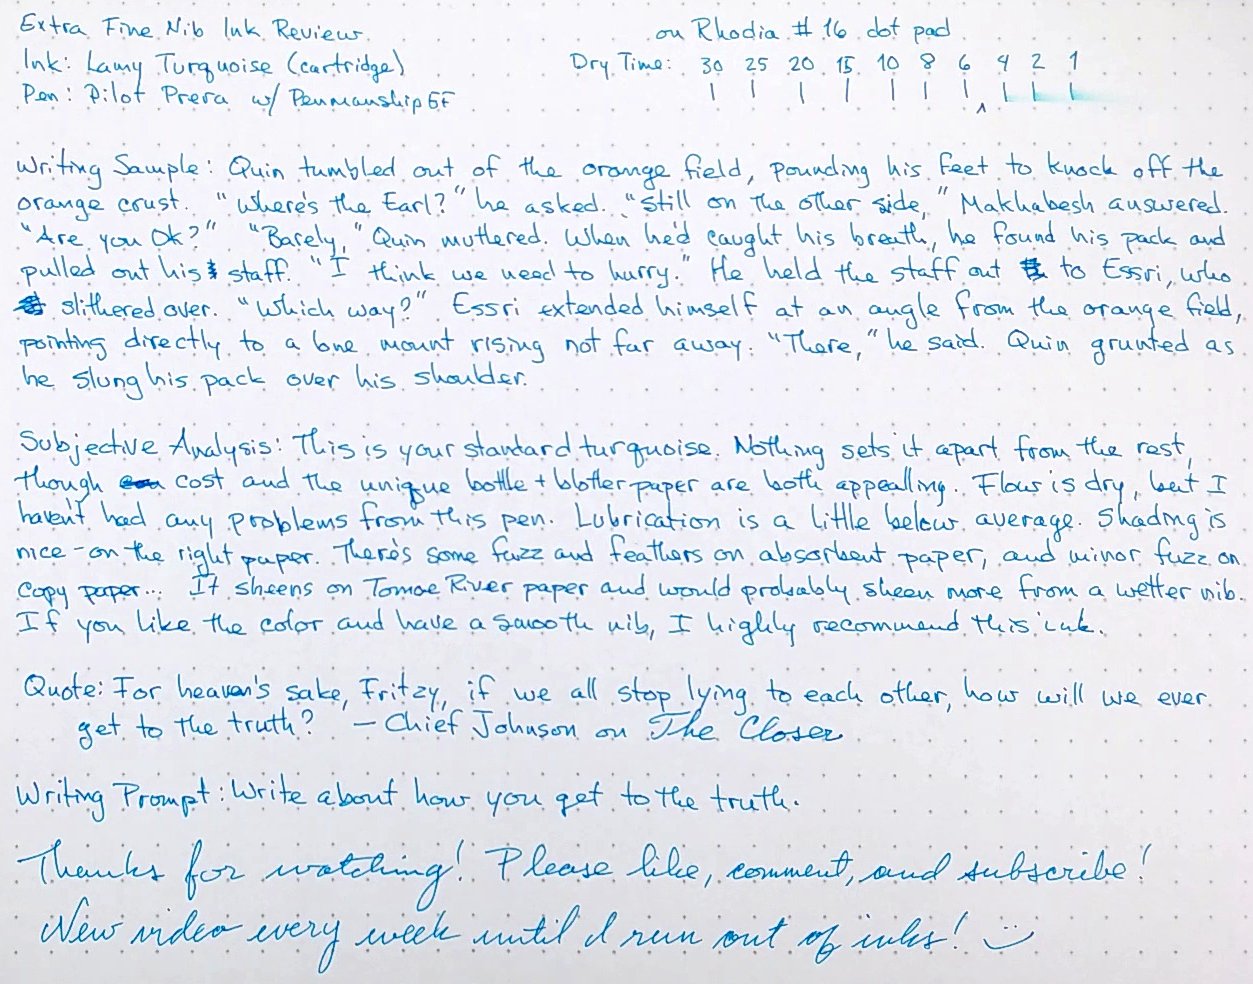 Extra Fine Nib Ink Review on Rhodia # 16 dot pad
Ink: Lamy Turquoise (cartridge) Dry Time: 30 25 20 15 10 8 6 4 2 1
Pen: Pilot Prera w/ Penmanship EF
Writing Sample: Quin tumbled out of the orange field, pounding his feet to knock off the
orange crust. "Where's the Earl?" he asked. "Still on the other side," Makhabesh answered.
"Are you Ok?" "Barely," Quin muttered. When he'd caught his breath, he found his pack and
pulled out his staff. "I think we need to hurry." He held the staff out to Essri, who
slithered over. "Which way?" Essri extended himself at an angle from the orange field,
pointing directly to a lone mount rising not far away. "There," he said. Quin grunted as
he slung his pack over his shoulder.
Subjective Analysis: This is your standard turquoise. Nothing sets it apart from the rest,
though cost and the unique bottle + blotter paper are both appealling. Flow is dry, but I
haven't had any problems from this pen. Lubrication is a little below average. Shading is
nice - on the right paper. There's some fuzz and feathers on absorbent paper, and minor fuzz on
copy paper... It sheens on Tomoe River paper and would probably sheen more from a wetter nib.
If you like the color and have a smooth nib, I highly recommend this ink.
Quote: For heaven's sake, Fritzy, if we all stop lying to each other, how will we ever
get to the truth? - Chief Johnson on The Closer
Writing Prompt: Write about how you get to the truth.
Thanks for watching! Please like, comment, and subscribe!
New video every week until I run out of inks!